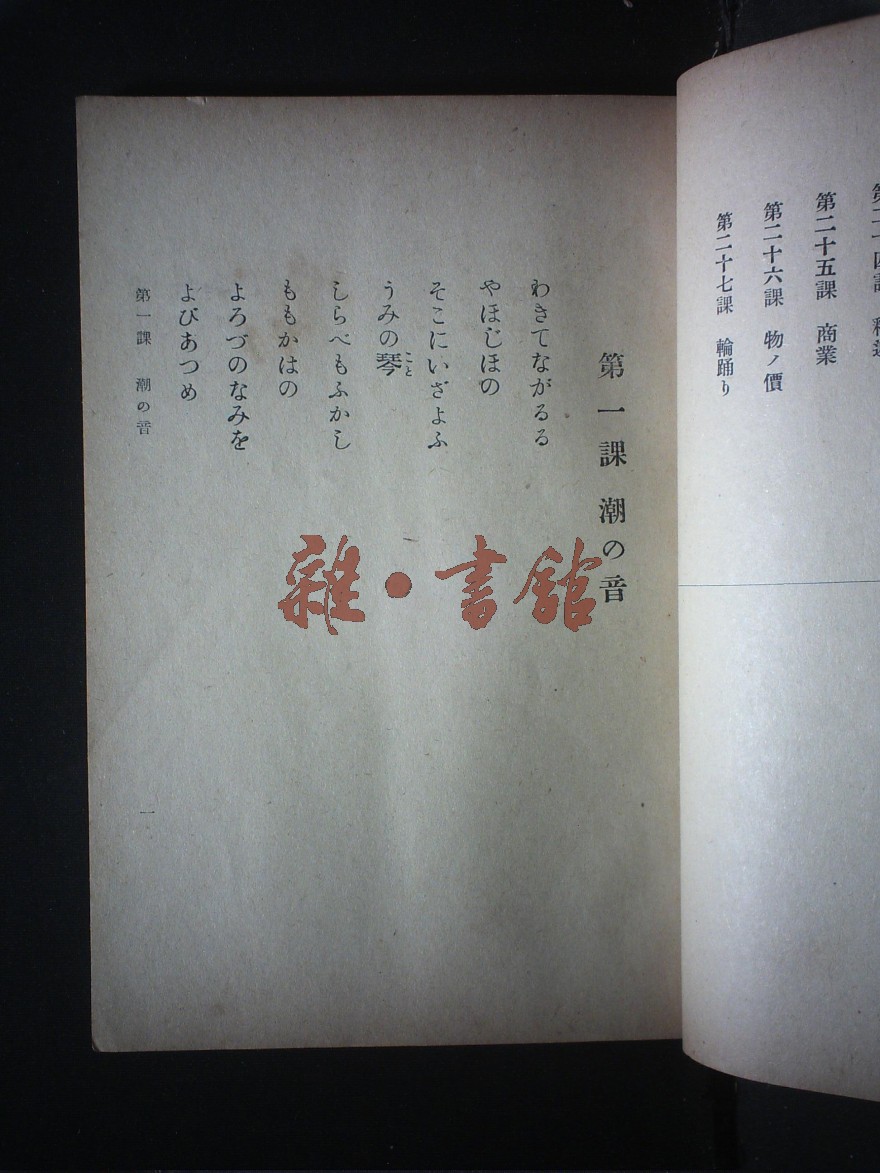 第二十五課 商業
第二十六課 物ノ價
第二十七課 輪踊り
第一課 潮の音
わきてながるる
やほじほの
そこにいざよふ
うみの琴
こと
しらべもふかし
ももかはの
よろづのなみを
よびあつめ
第一課 潮の音
一
雜・書館